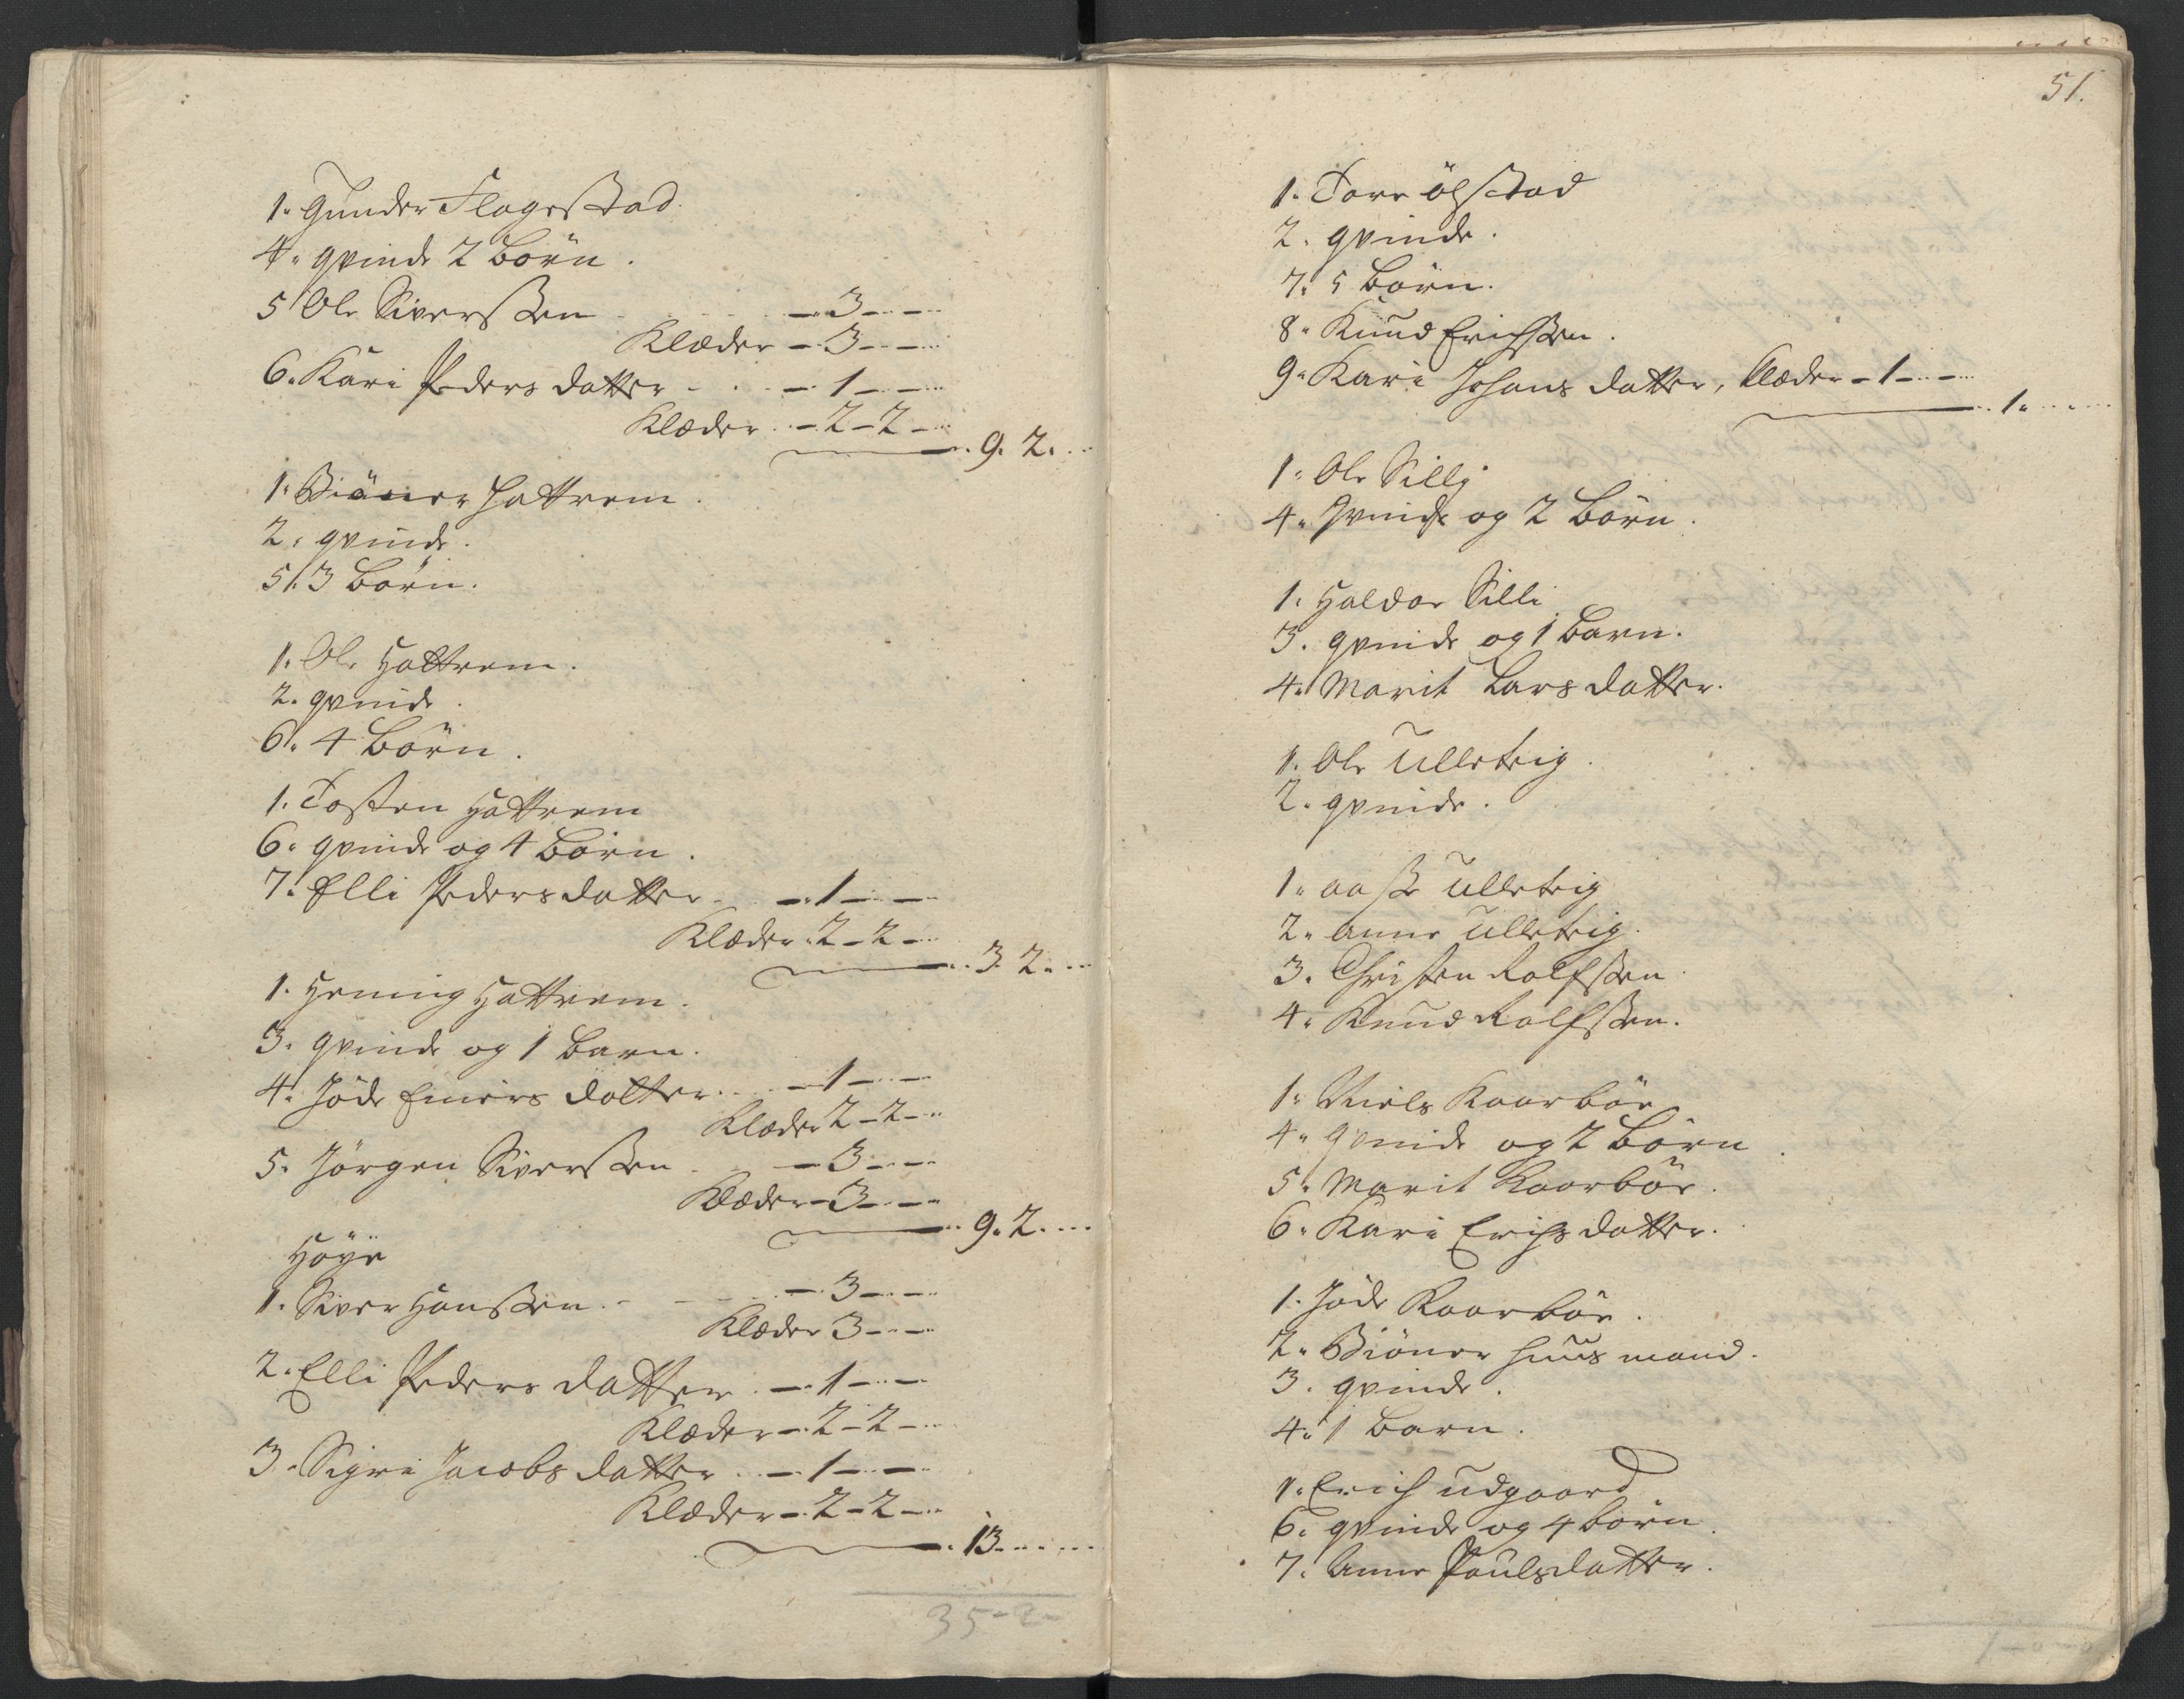 1. Gunder Flagestad.
4. qvinde 2 börn.
5 Ole Siverssen - 3 -
Klæder - 3 -
6. Kari Peders datter - 1 -
Klæder - 2 - 2 -
9. 2.
1. Biöner Hattrem.
2. qvinde.
5. 3 börn.
1. Ole Hattrem.
2. qvinde.
6. 4 börn.
1. Tosten Hattrem
6. qvinde og 4 börn.
7. Elli Pedersdatter - 1 -
Klæder 2 - 2 -
3. 2.
1. Hening Hattrem.
3. qvinde og 1 barn.
4. Jöde Einers datter - 1 -
Klæder 2 - 2 -
5. Jörgen Siverssen - 3 -
Klæder - 3 -
9. 2.
Höye
1. Siver Hanssen. - 3 -
Klæder 3 -
2. Elli Peders datter - 1 -
Klæder - 2 - 2 -
3. Sigri Jacobs datter - 1 -
Klæder - 2 - 2 -
13.
35 - 2 -
51.
1. Tore ölstad
2. qvinde.
7. 5 börn.
8. Knud Erichssen.
9. Kari Johans datter, Klæder - 1 -
1.
1. Ole Silly
4. Qvinde og 2 börn.
1. Haldor Silli
3. qvinde og 1 barn.
4. Marit Lars datter.
1. Ole Ulleteig.
2. qvinde.
1. aase Ulleteig
2. Anne Ulleteig.
3. Christen Rolfssen.
4. Knud Rolfssen.
1. Niels Kaarböe
4. Qvinde og 2 börn.
5. Marit Kaarböe.
6. Kari Erichs datter.
1. Jöde Kaarböe.
2. Biöner huus mand.
3. qvinde.
4. 1 barn.
1. Erich udgaard
6. qvinde og 4 börn.
7. Anne Poulsdatter.